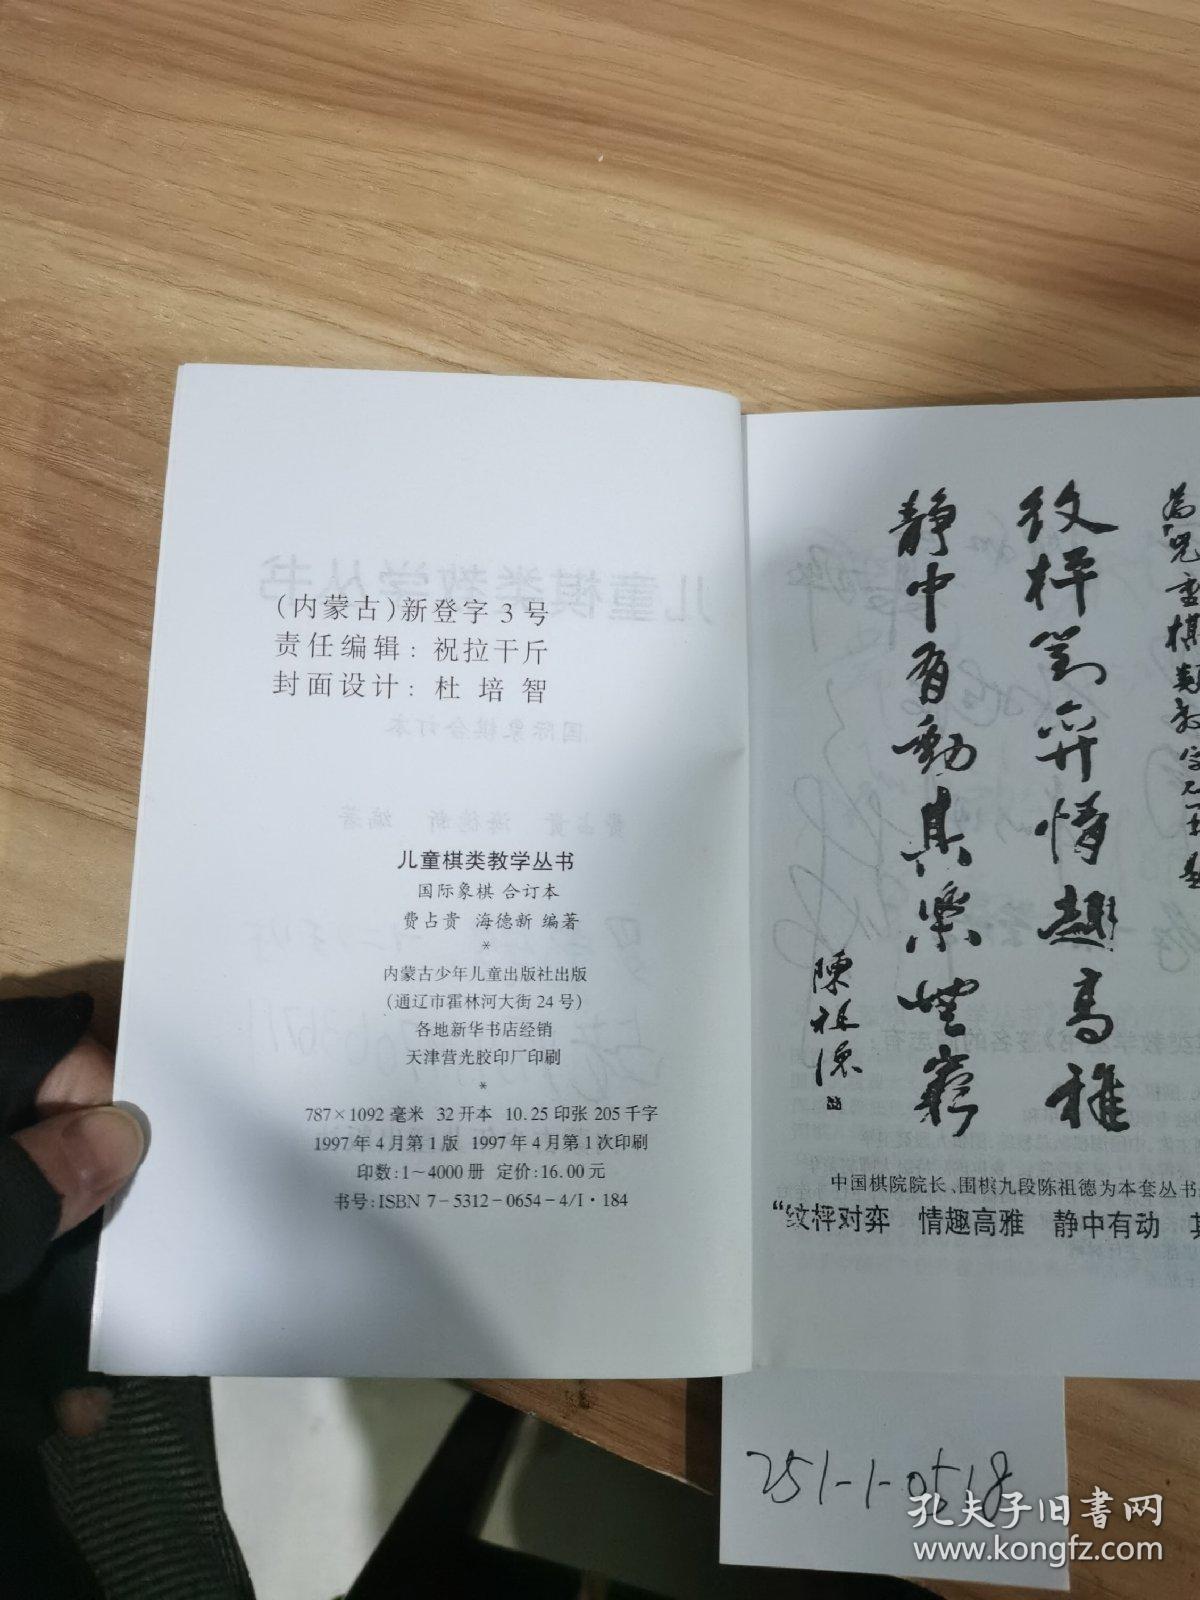 (内蒙古)新登字3号
责任编辑: 祝拉干斤
封面设计: 杜 培 智
儿童棋类教学丛书
国际象棋 合订本
费占贵 海德新 编著
*
内蒙古少年儿童出版社出版
(通辽市霍林河大街24号)
各地新华书店经销
天津营光胶印厂印刷
*
787×1092毫米 32开本 10.25印张 205千字
1997年4月第1版 1997年4月第1次印刷
印数:1~4000册 定价:16.00元
书号:ISBN 7-5312-0654-4/I·184
为儿童棋类教学
纹枰对弈情趣高雅
静中有动其乐无穷
陈祖德
中国棋院院长、围棋九段陈祖德为本套丛书
“纹枰对弈 情趣高雅 静中有动 其
251-1-0518
孔夫子旧书网
www.kongfz.com